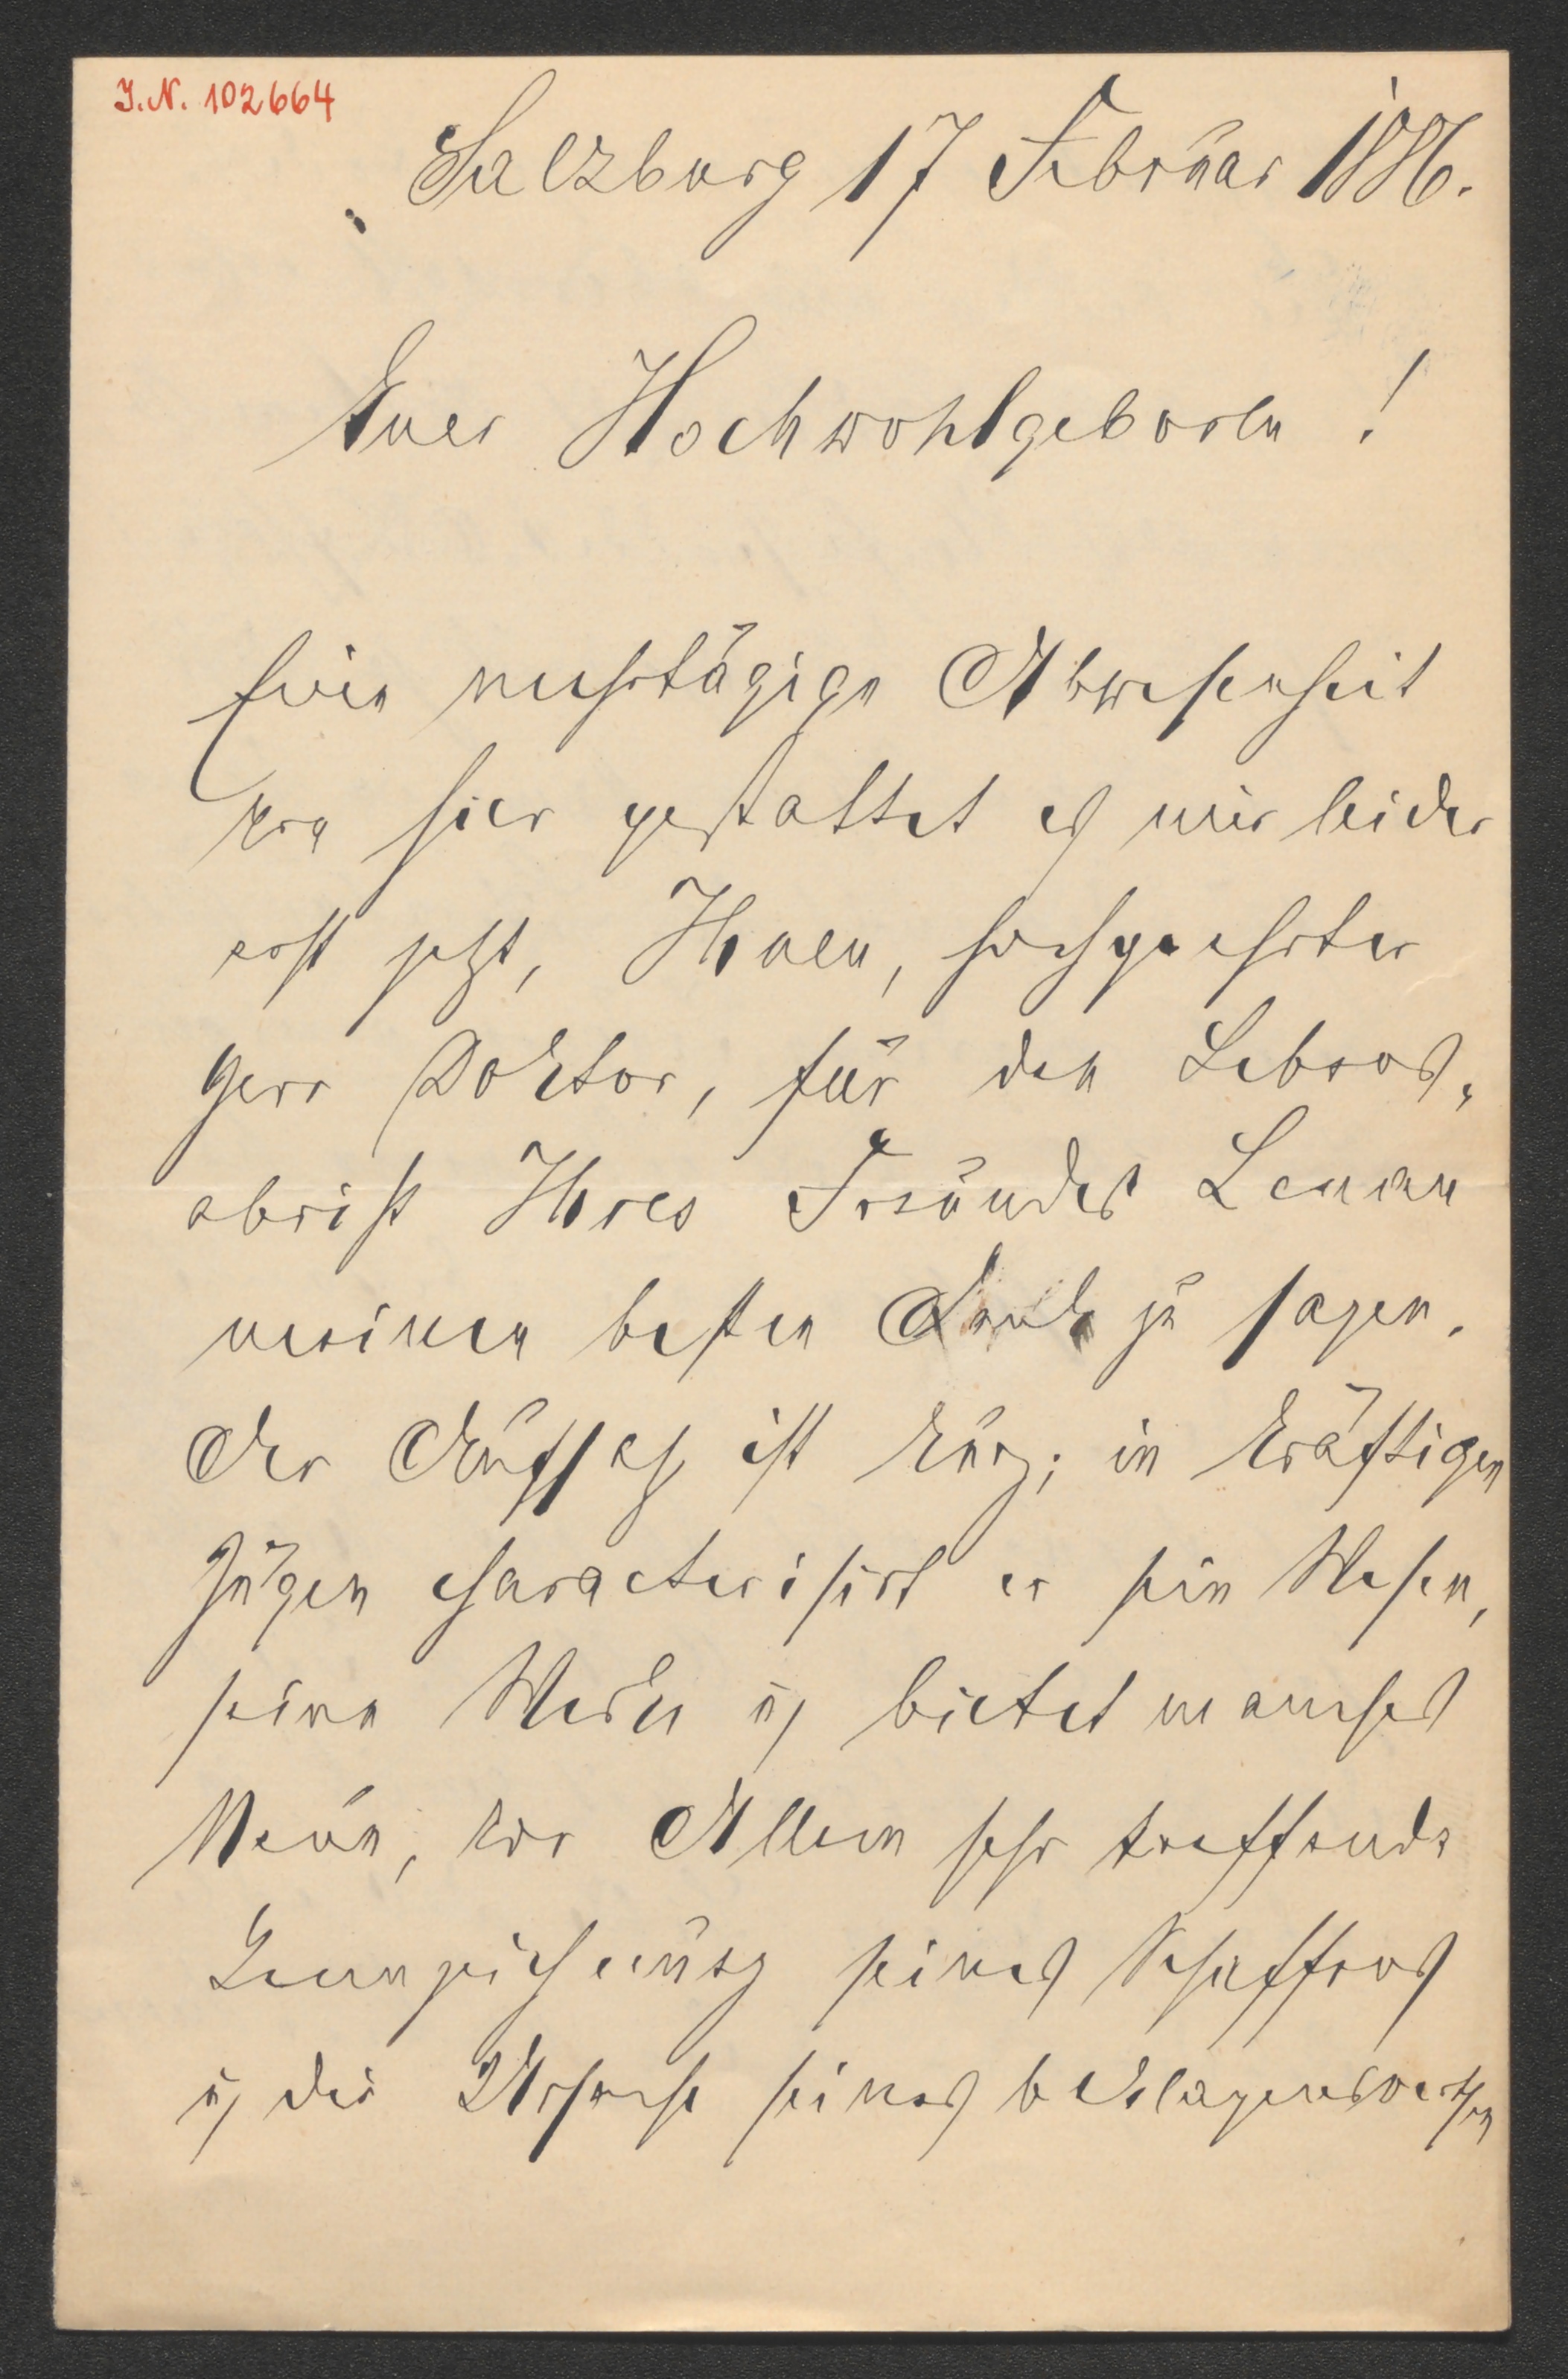 I.N. 102664
Salzburg 17 Februar 1886.
Euer Hochwohlgeboren!
Eine mehrtägige Abwesenheit
von hier gestattet es mir leider
erst jetzt, Ihnen, hochgeehrter
Herr Doktor, für den Lebens-
abriß Ihres Freundes Lenau
meinen besten Dank zu sagen.
Der Aufsatz ist kurz; in kräftigen
Zügen characterisirt er sein Wesen,
seine Werke u bietet manches
Neue, vor Allem sehr treffende
Kennzeichnung seines Schaffens
u die Ursache seines beklagenswerthen